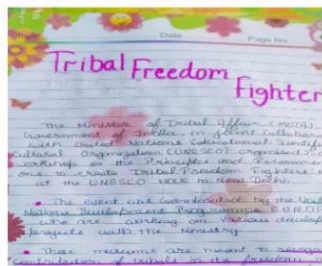 Date
Page No
Tribal Freedom
Fighter
The Minister of Tribal Affair (MOTA),
Government of India in joint collabora
with United Nations Educational Scientif
Cultural Organization (UNESCO) organised
workshop on the Principles and
one to create Tribal Freedom Fighters
at the UNESCO House in New Delhi.
The event was coordinated by the Unit
Nations Development Programme (UNDP
who are working on various develop
projects with the Ministry.
These museums are meant to recogn
contribution of tribals in the freedom